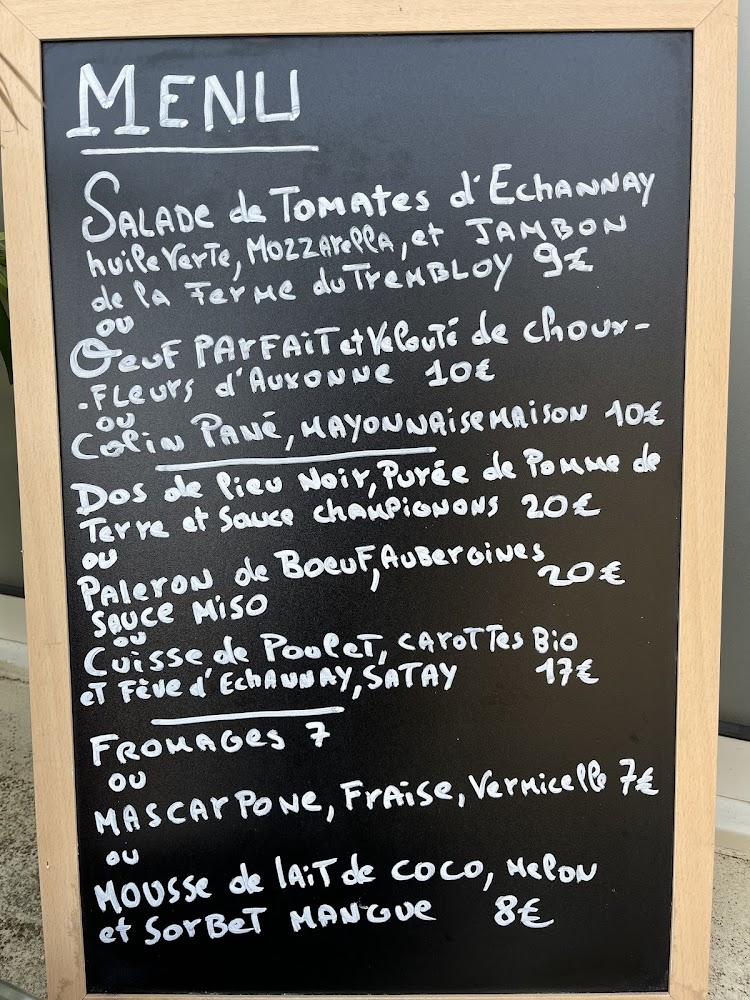 MENU
SALADE de TOMATES d'ECHANNAY
huile verte, MOZZARELLA, et JAMBON
de la Ferme du TREMBLOY 9€
OU
OEUF PARFAIT et Velouté de choux-
-Fleurs d'AUXONNE 10€
OU
Colin PANÉ, MAYONNAISE MAISON 10€
Dos de lieu Noir, Purée de Pomme de
Terre et Sauce CHAMPIGNONS 20€
OU
PALERON de BOEUF, AUBERGINES
SAUCE MISO 20€
OU
CUISSE de POULET, CAROTTES BIO
ET Fève d'ECHANNAY, SATAY 17€
FROMAGES 7
OU
MASCARPONE, FRAISE, Vermicelle 7€
OU
MOUSSE de lAIT de COCO, MELON
et SORBET MANGUE 8€